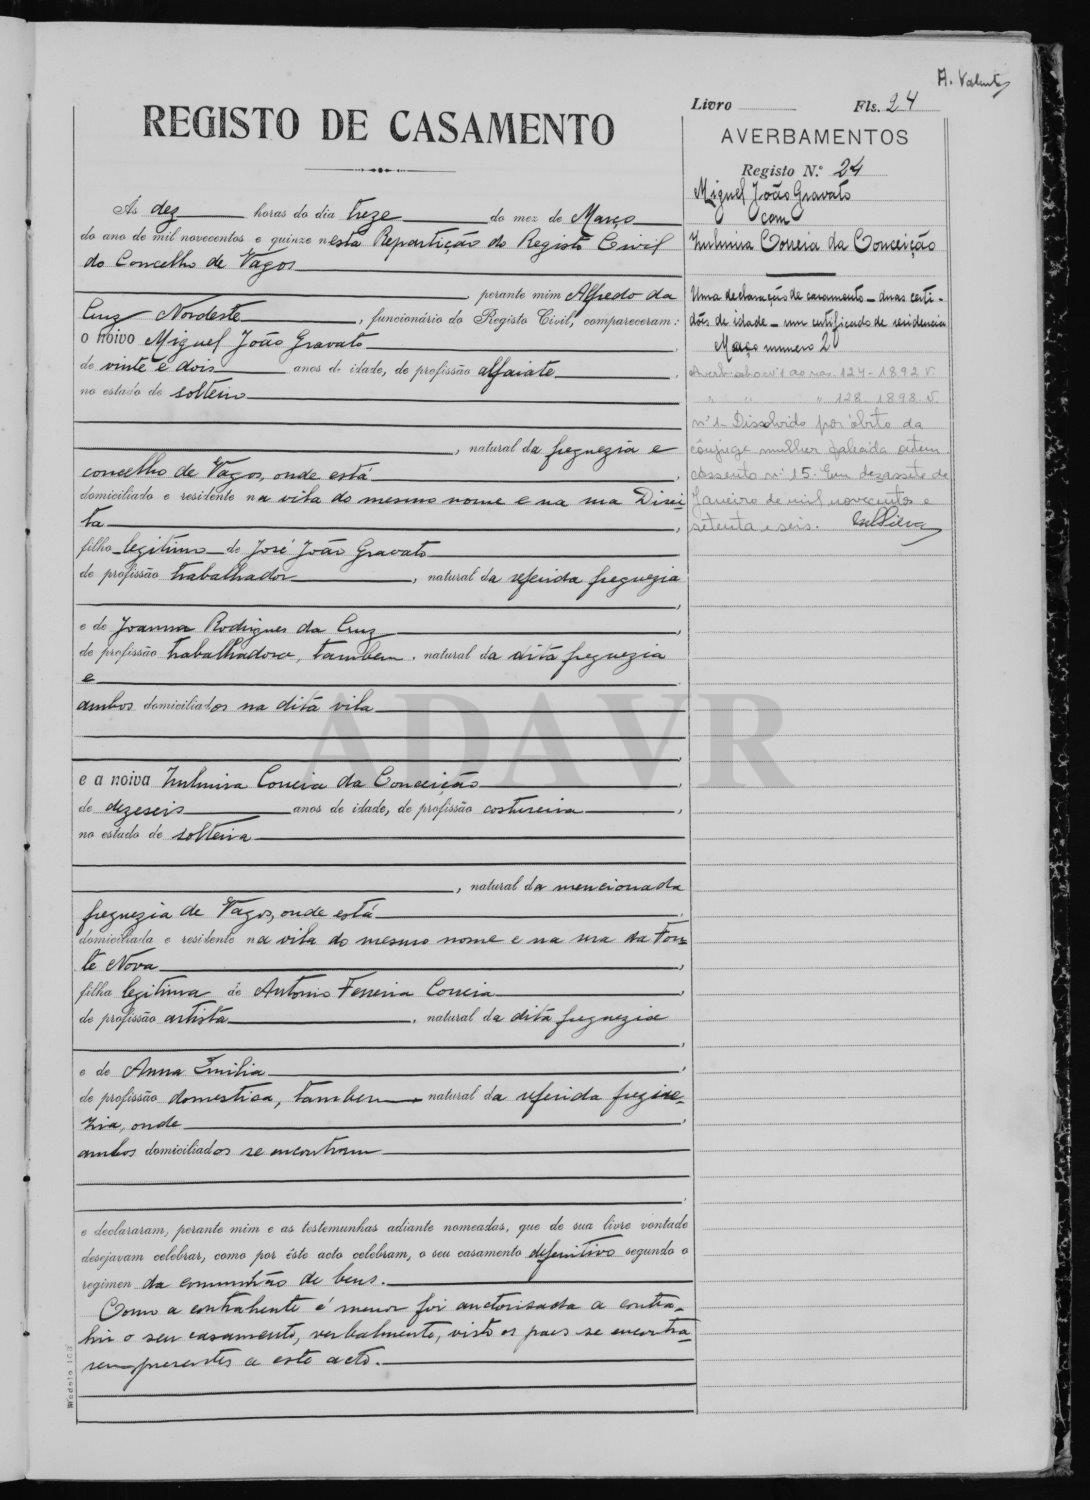 A. Valente
Livro Fls. 24
REGISTO DE CASAMENTO
AVERBAMENTOS
Registo N.º 24
Miguel João Gravato
com
Zulmira Correia da Conceição
Uma declaração de casamento – duas certi-
dões de idade – um certificado de residencia
Maço numero 2
Averb. sob o nº 1 ao nas. 124 - 1892 V.
" " " 128 - 1898. V.
nº 1 - Dissolvido por óbito da
cônjuge mulher falecida ontem.
assento nº 15. Em dezassete de
Janeiro de mil novecentos e
setenta e seis.
Ás dez horas do dia treze do mez de Março
do ano de mil novecentos e quinze nesta Repartição do Registo Civil
do Concelho de Vagos
, perante mim Alfredo da
Cruz Nordeste, funcionário do Registo Civil, compareceram:
o noivo Miguel João Gravato,
de vinte e dois anos de idade, de profissão alfaiate,
no estado de solteiro
, natural da freguezia e
concelho de Vagos, onde está
domiciliado e residente na vila do mesmo nome e na rua Direi-
ta,
filho legitimo de José João Gravato
de profissão trabalhador, natural da referida freguezia
,
e de Joanna Rodrigues da Cruz,
de profissão trabalhadora, tambem, natural da dita freguezia
e
ambos domiciliados na dita vila
,
e a noiva Zulmira Correia da Conceição,
de dezeseis anos de idade, de profissão costureira,
no estado de solteira
, natural da mencionada
freguezia de Vagos, onde está,
domiciliada e residente na vila do mesmo nome e na rua da Fon-
te Nova,
filha legitima de Antonio Ferreira Correia,
de profissão artista, natural da dita freguezia
,
e de Anna Emilia,
de profissão domestica, tambem natural da referida fregue-
zia, onde,
ambos domiciliados se encontram
e declararam, perante mim e as testemunhas adiante nomeadas, que de sua livre vontade
desejavam celebrar, como por êste acto celebram, o seu casamento definitivo segundo o
regimen da comunhão de bens.
Como a contrahente é menor foi auctorisada a contra-
hir o seu casamento, verbalmente, visto os paes se encontra-
rem presentes a este acto.
Modelo 103
ADAVR